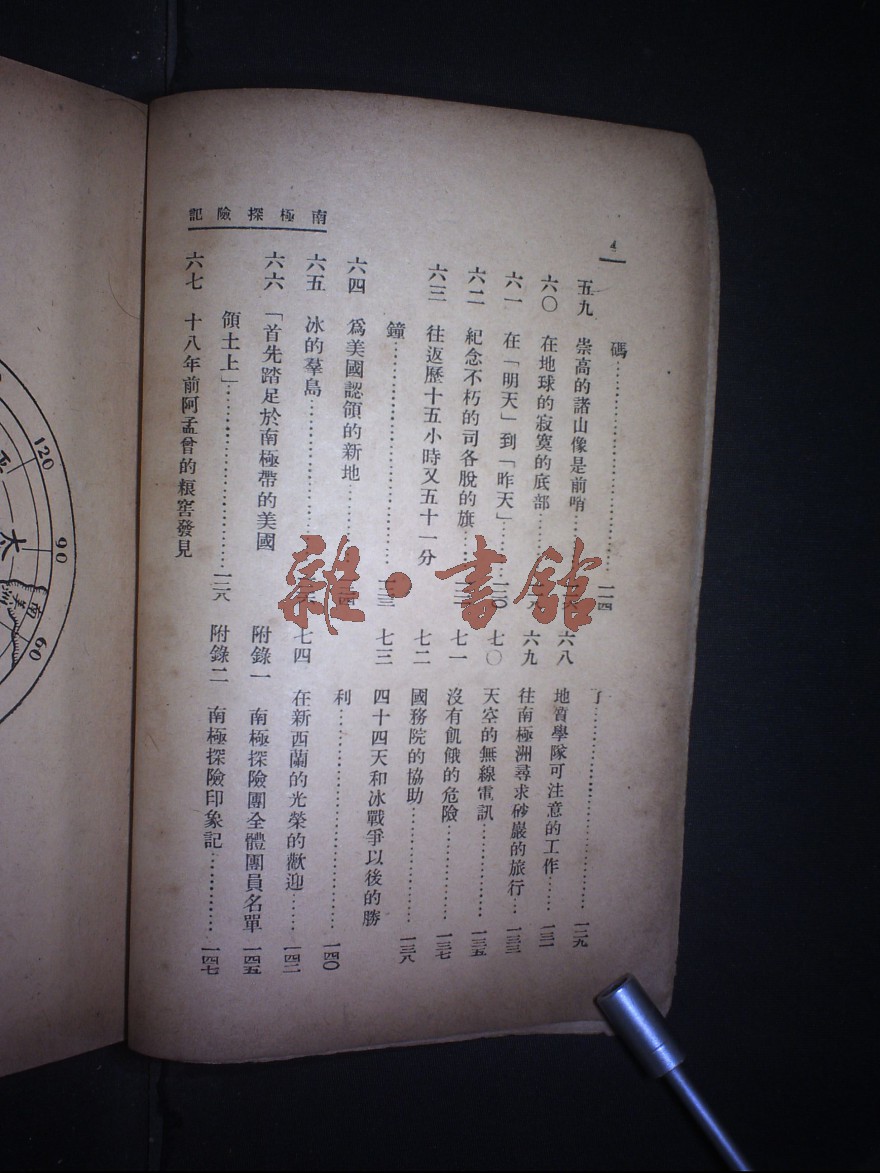 南極探險記
碼……一一四
五九 崇高的諸山像是前哨……
六〇 在地球的寂寞的底部……
六一 在「明天」到「昨天」……
六二 紀念不朽的司各脫的旗……
六三 往返歷十五小時又五十一分
鐘……
六四 爲美國認領的新地……
六五 冰的羣島……
六六 「首先踏足於南極帶的美國
領土上」……一二八
六七 十八年前阿孟曾的粮窖發見
了……一二九
六八 地質學隊可注意的工作……一三一
六九 往南極洲尋求砂巖的旅行…一三三
七〇 天空的無線電訊……一三五
七一 沒有飢餓的危險……一三七
七二 國務院的協助……一三八
七三 四十四天和冰戰爭以後的勝
利……一四〇
七四 在新西蘭的光榮的歡迎……一四二
附錄一 南極探險團全體團員名單 一四五
附錄二 南極探險印象記……一四七
雜·書館
120
90
60
太
南美洲